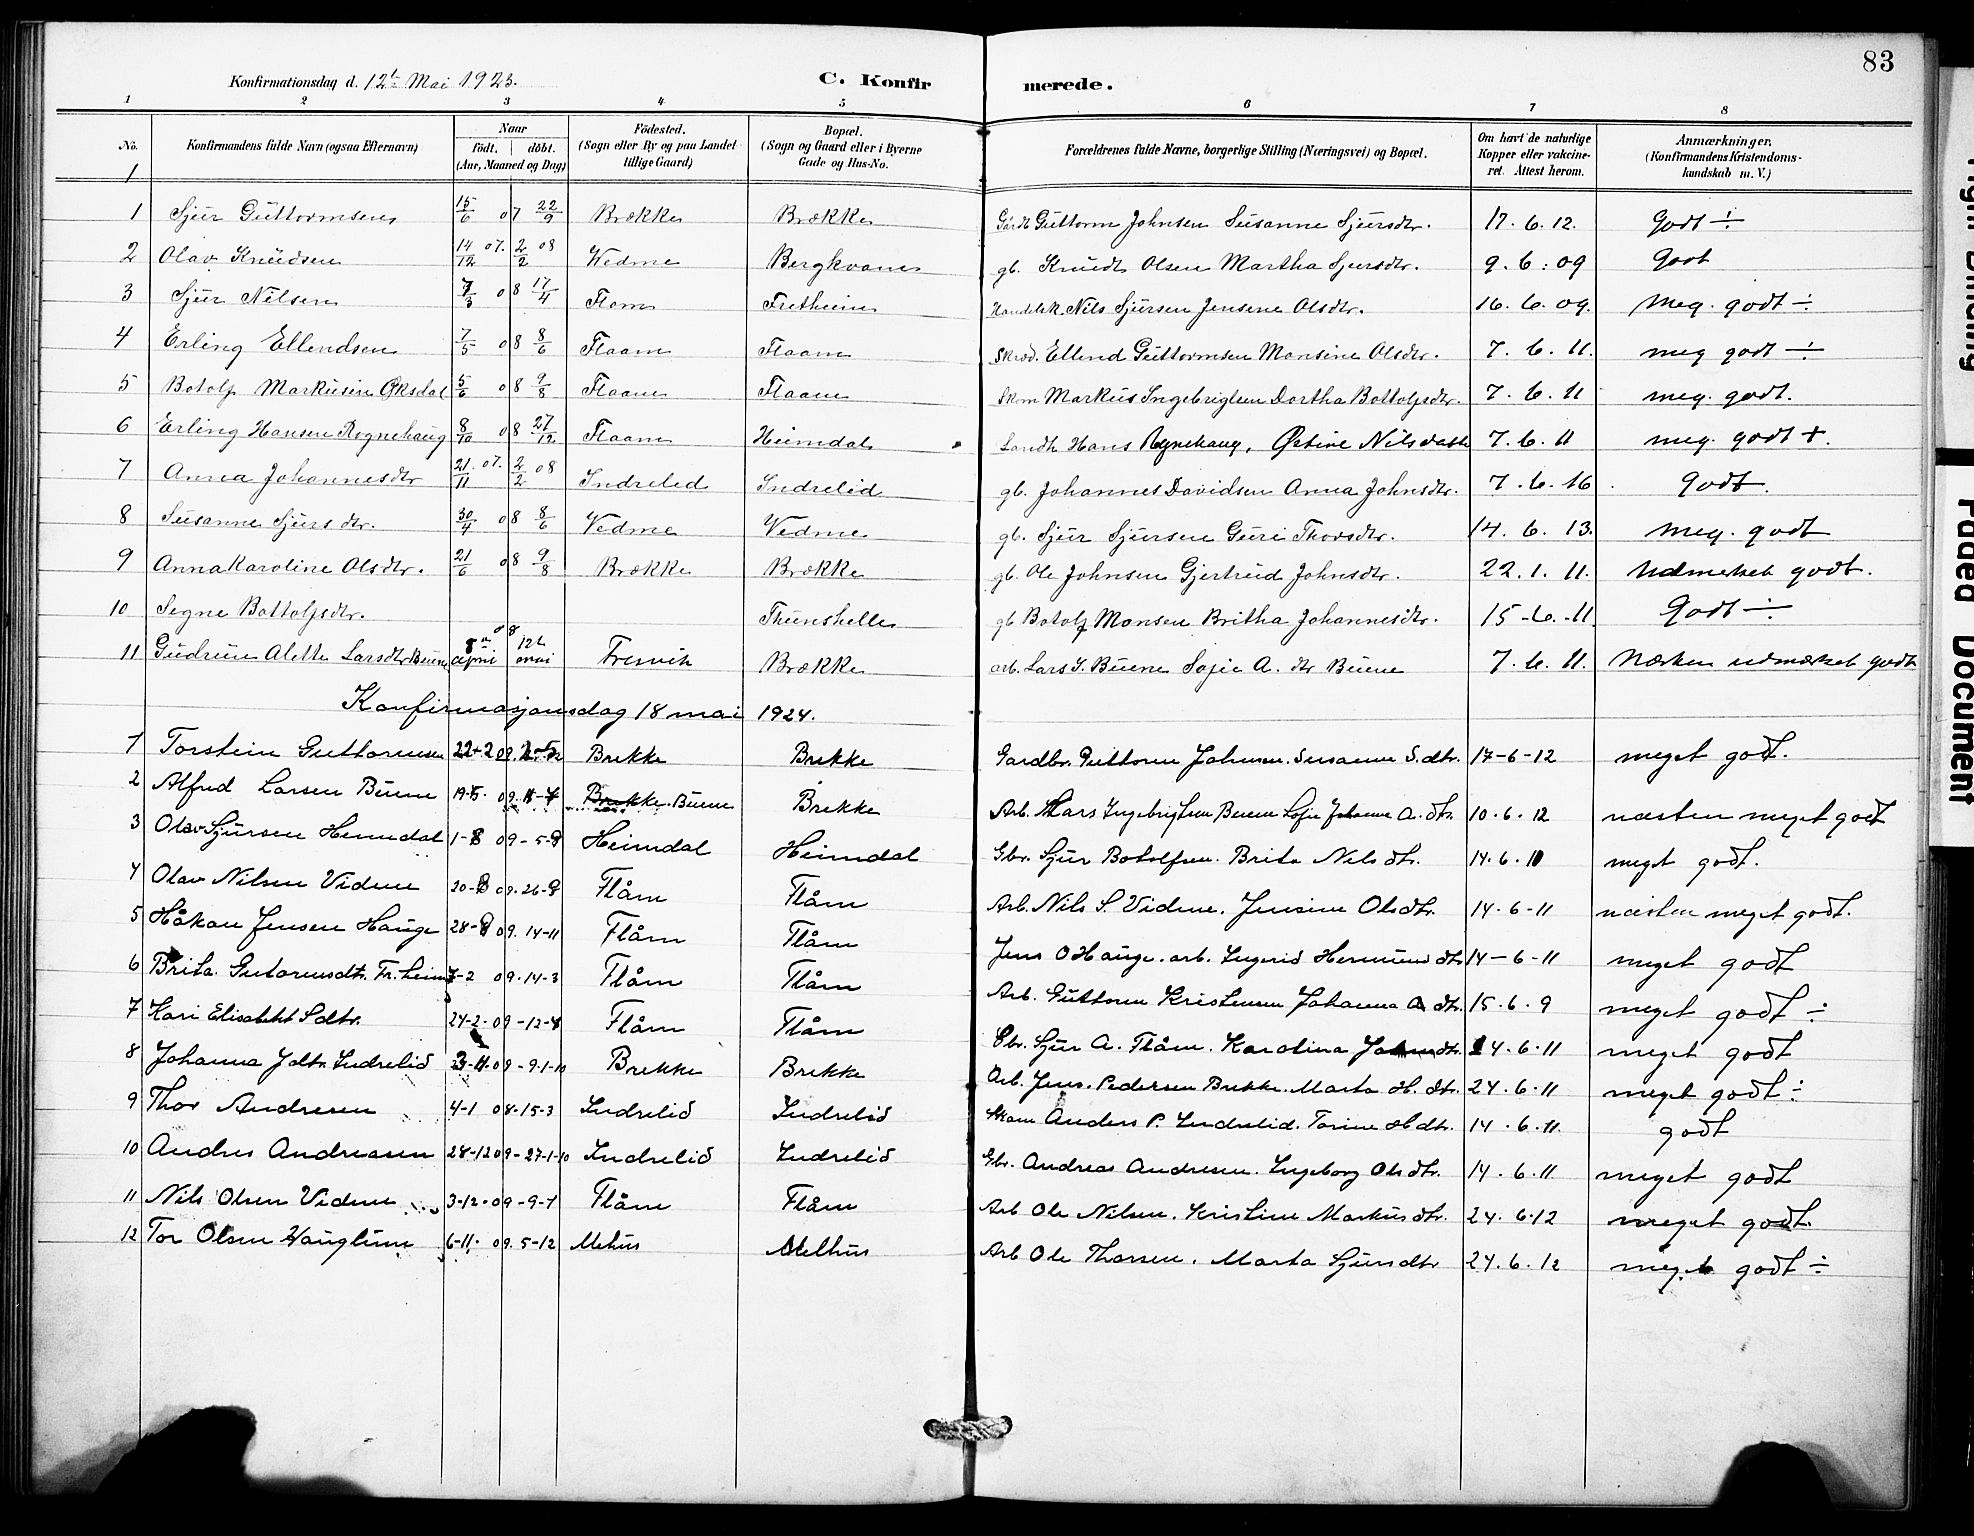 83
Konfirmationsdag d. 12te Mai 1923. C. Konfirmerede.
1 2 3 4 5 6 7 8
No. Konfirmandens fulde Navn (ogsaa Efternavn) Naar født. døbt. (Aar, Maaned og Dag) Fødested. (Sogn eller By og paa Landet tillige Gaard) Bopæl. (Sogn og Gaard eller i Byerne Gade og Hus-No. Forældrenes fulde Navne, borgerlige Stilling (Næringsvei) og Bopæl. Om havt de naturlige Kopper eller vakcineret. Attest herom. Anmærkninger. (Konfirmandens Kristendomskundskab m. V.)
1
1 Sjur Guttormsen 15/6 07 22/9 Brække Brække Gårdb Guttorm Johnsen Susanne Sjursdtr. 17. 6. 12. Godt ÷
2 Olav Knudsen 14/12 07. 2/2 08 Vedme Bergkvam gb. Knudt Olsen Martha Sjursdtr. 9. 6. 09 Godt
3 Sjur Nilsen 7/3 08 17/4 Flom Fretheim Handelsk. Nils Sjursen Jensine Olsdtr. 16. 6. 09. Meg. godt ÷
4 Erling Ellendsen 7/5 08 8/6 Flaam Flaam Skræd. Ellend Guttormsen Monsine Olsdtr. 7. 6. 11. meg godt ÷
5 Botolf Markusen Øksdal 5/6 08 9/8 Flaam Flaam Skom Markus Ingebrigtsen Dortha Bottolfsdtr. 7. 6. 11 meg. godt.
6 Erling Hansen Rognehaug 8/10 08 27/12 Flaam Heimdal Landh Hans Rognehaug, Østine Nilsdatte 7. 6. 11 meg. godt +.
7 Anna Johannesdtr 21/11 07. 2/2 08 Indrelid Indrelid gb. Johannes Davidsen Anna Johnsdtr. 7. 6. 16. Godt.
8 Susanne Sjursdtr. 30/4 08 8/6 Vedme Vedme gb. Sjur Sjursen Guri Thorsdtr. 14. 6. 13. meg. godt
9 Anna Karoline Olsdtr. 21/6 08 9/8 Brække Brække gb. Ole Johnsen Gjertrud Johnsdtr. 22. 1. 11. Udmerket godt.
10 Segne Bottolfsdtr. Thunshelle gb Botolf Monsen Britha Johannesdtr. 15-6.-11 Godt ÷
11 Gudrun Alette Larsdtr Buene 8de april 08 12te mai Fresvik Brække arb. Lars I. Buene Sofie A. dtr Buene 7. 6. 11. Næsten udmærket godt
Konfirmasjonsdag 18 mai 1924.
1 Torstein Guttormsen 22-2 09. Brekke Brekke Gardbr. Guttorm Johnsen. Susanne S.dtr. 17-6-12 meget godt.
2 Alfred Larsen Buene 19-5. 09. Brekke. Buene Brekke Arb. Lars Ingebrigtsen Buene Sofie Johanne A. dtr. 10. 6. 12 næsten meget godt
3 Olav Sjursen Heimdal 1-8 09-5-9 Heimdal Heimdal Gbr. Sjur Botolfsen. Brita Nils dtr. 14. 6. 11 meget godt.
4 Olav Nilsen Vidme 20-8 09. 26-9 Flåm Flåm Arb. Nils S. Vidme. Jensine Olsdtr. 14. 6-11 næsten meget godt.
5 Håkon Jensen Hauge 28-9 09. 14-11 Flåm Flåm Jens O Hauge. arb. Ingerid Hermundsdtr 14-6-11 meget godt
6 Brita Gutormsdtr. Fretheim 7-2 09. 14-3 Flåm Flåm Arb. Guttorm Kristensen Johanna A dtr. 15. 6. 9 meget godt ÷
7 Kari Elisabeth Sdtr. 24-2. 09-12-4 Flåm Flåm Gbr. Sjur A. Flåm. Karolina dtr. 14. 6. 11 meget godt
8 Johanna Jdtr. Indrelid 3-11. 09-9-1-10 Brekke Brekke Arb. Jens. Pedersen Brekke. Marta H. dtr. 24. 6. 11 meget godt ÷
9 Thor Andresen 4-1 08-15-3 Indrelid Indrelid Skom Anders P. Indrelid. Torine H dtr. 14. 6. 11. godt
10 Andres Andreasen 28-12 09-27-1-10 Indrelid Indrelid Gbr. Andreas Andresen. Ingeborg Ols dtr. 14. 6. 11 meget godt
11 Nils Olsen Vidme 3-12. 09-9-1 Flåm Flåm Arb Ole Nilsen. Kristine Markus dtr. 24. 6. 12 meget godt.
12 Tor Olsen Hauglum 6-11. 09. 5-12 Melhus Melhus Arb Ole Thorsen. Marta Sjursdtr 24. 6. 12 meget godt ÷
Tight Binding
Faded Document